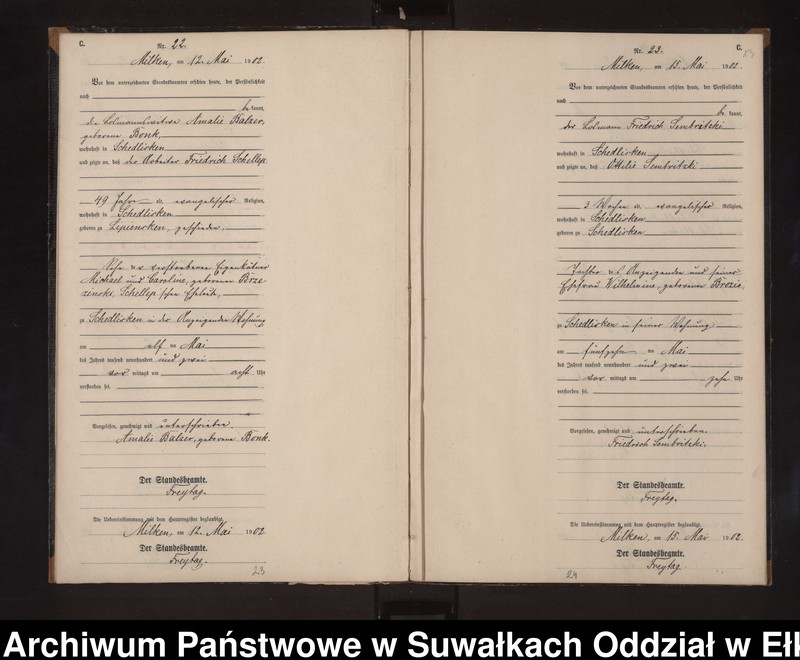 C.
Nr. 22.
Milken, am 12. Mai 1902.
Vor dem unterzeichneten Standesbeamten erschien heute, der Persönlichkeit
nach
be kannt,
die Losmannswitwe Amalie Balzer,
geborene Bonk,
wohnhaft in Schedlisken
und zeigte an, daß der Arbeiter Friedrich Schellep
49 Jahre alt, evangelischer Religion,
wohnhaft in Schedlisken
geboren zu Lipiencken, geschieden,
Sohn der verstorbenen Eigenkätner
Michael und Caroline, geborenen Brze-
zinski, Schellep'schen Eheleute,
zu Schedlisken in der Anzeigenden Wohnung
am elf ten Mai
des Jahres tausend neunhundert und zwei
vor mittags um acht Uhr
verstorben sei.
Vorgelesen, genehmigt und unterschrieben
Amalie Balzer, geborene Bonk.
Der Standesbeamte.
Freytag.
Die Uebereinstimmung mit dem Hauptregister beglaubigt.
Milken, am 12. Mai 1902.
Der Standesbeamte.
Freytag.
23
C.
Nr. 23.
Milken, am 15. Mai 1902.
Vor dem unterzeichneten Standesbeamten erschien heute, der Persönlichkeit
nach
be kannt,
der Losmann Friedrich Sembritzki
wohnhaft in Schedlisken
und zeigte an, daß Ottilie Sembritzki
3 Wochen alt, evangelischer Religion,
wohnhaft in Schedlisken
geboren zu Schedlisken
Tochter des Anzeigenden und seiner
Ehefrau Wilhelmine, geborenen Brozio,
zu Schedlisken in seiner Wohnung
am fünfzehn ten Mai
des Jahres tausend neunhundert und zwei
vor mittags um zehn Uhr
verstorben sei.
Vorgelesen, genehmigt und unterschrieben.
Friedrich Sembritzki.
Der Standesbeamte.
Freytag.
Die Uebereinstimmung mit dem Hauptregister beglaubigt.
Milken, am 15. Mai 1902.
Der Standesbeamte.
Freytag
24
Archiwum Państwowe w Suwałkach Oddział w Ełk